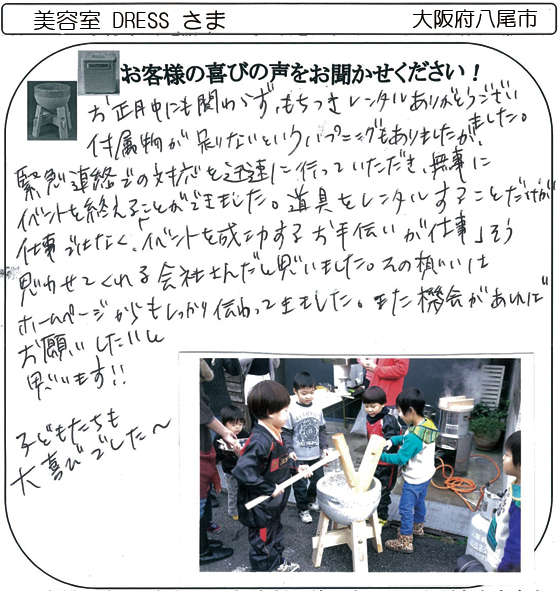 美容室 DRESS さま 大阪府八尾市
お客様の喜びの声をお聞かせください！
お正月中にも関わらず、もちつきレンタルありがとうござい
ました。
付属物が足りないというハプニングもありましたが、
緊急連絡での対応を迅速に行っていただき、無事に
イベントを終えることができました。道具をレンタルすることだけが
仕事ではなく、「イベントを成功するお手伝いが仕事」そう
思わせてくれる会社さんだと思いました。その想いは
ホームページからもしっかり伝わってきました。また機会があれば
お願いしたいと
思います!!
子どもたちも
大喜びでした〜